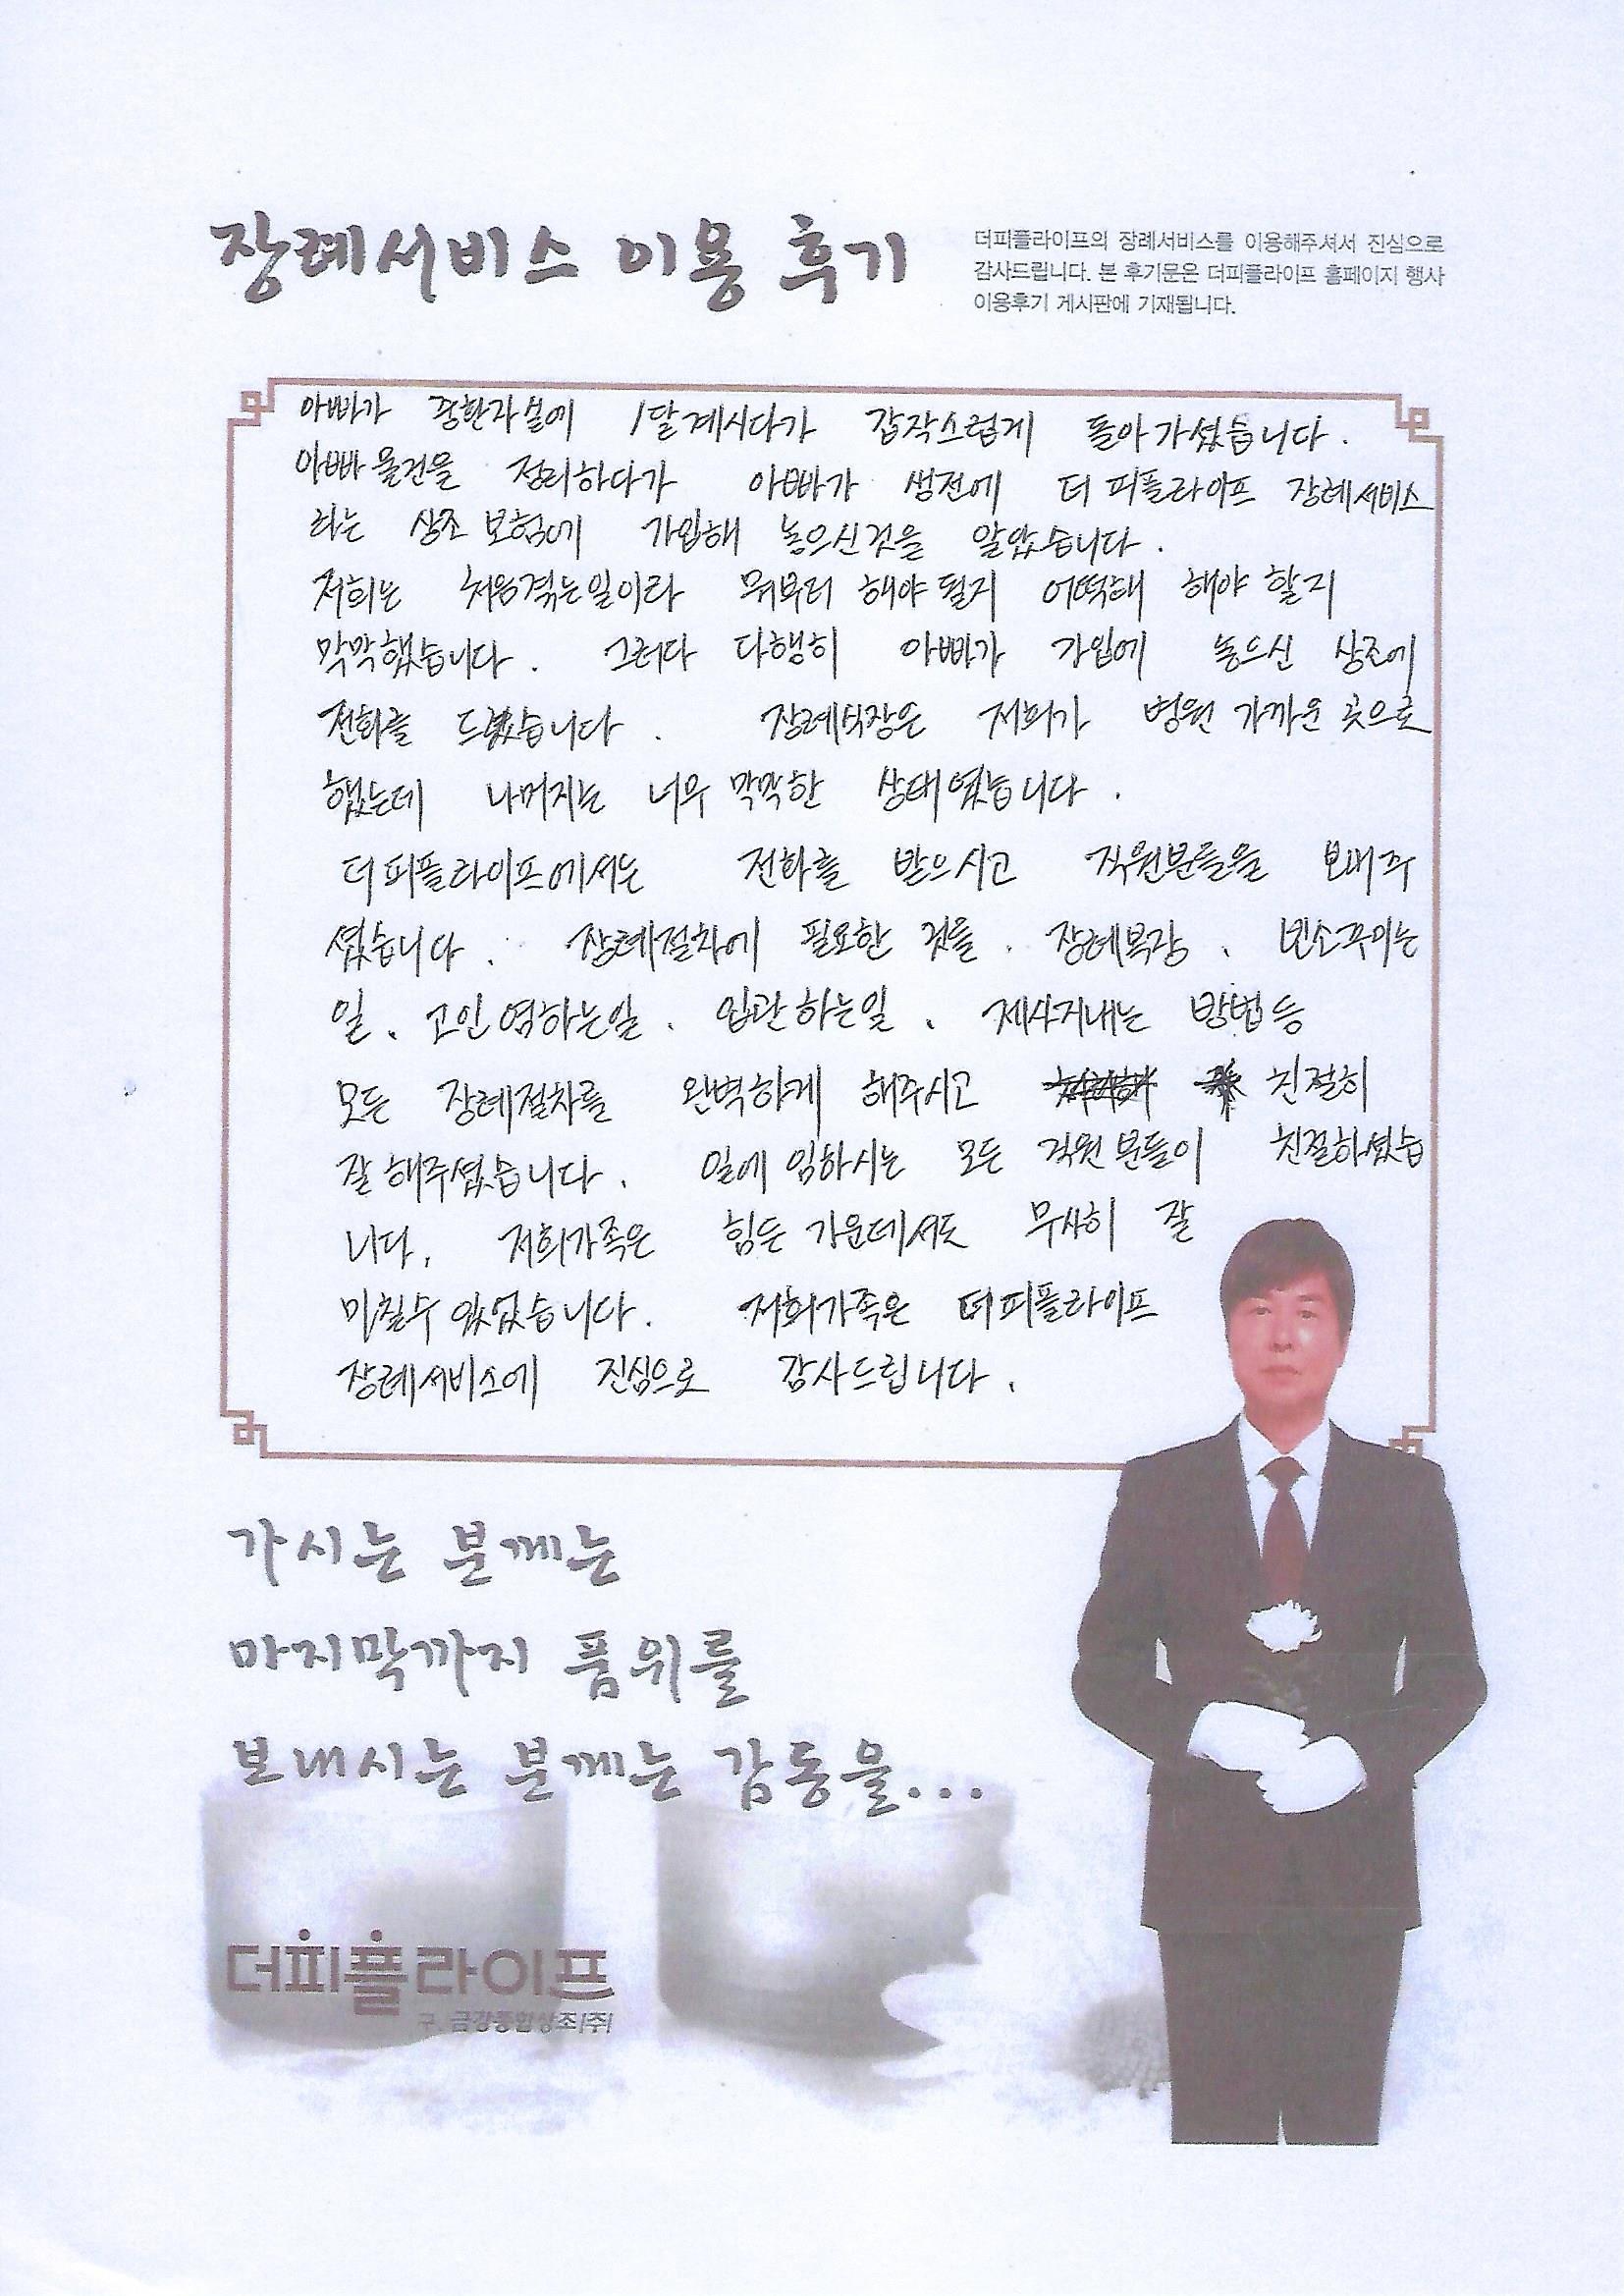 장례서비스 이용 후기
더피플라이프의 장례서비스를 이용해주셔서 진심으로
감사드립니다. 본 후기문은 더피플라이프 홈페이지 행사
이용후기 게시판에 기재됩니다.
아빠가 중환자실에 1달계시다가 갑작스럽게 돌아가셨습니다.
아빠물건을 정리하다가 아빠가 생전에 더피플라이프 장례서비스
라는 상조보험에 가입해 놓으신것을 알았습니다.
저희는 처음겪는일이라 뭐부터 해야될지 어떡해 해야할지
막막했습니다. 그러다 다행히 아빠가 가입에 놓으신 상조에
전화를 드렸습니다. 장례식장은 저희가 병원 가까운 곳으로
했는데 나머지는 너무 막막한 상태였습니다.
더피플라이프에서는 전화를 받으시고 직원분들을 보내주
셨습니다. 장례절차에 필요한 것들. 장례복장. 빈소꾸미는
일. 고인염하는일. 입관하는일. 제사지내는 방법등
모든 장례절차를 완벽하게 해주시고 친절히
잘해주셨습니다. 일에 임하시는 모든 직원분들이 친절하셨습
니다. 저희가족은 힘든 가운데서도 무사히 잘
마칠수있었습니다. 저희가족은 더피플라이프
장례서비스에 진심으로 감사드립니다.
가시는 분께는
마지막까지 품위를
보내시는 분께는 감동을...
더피플라이프
구. 금강종합상조(주)